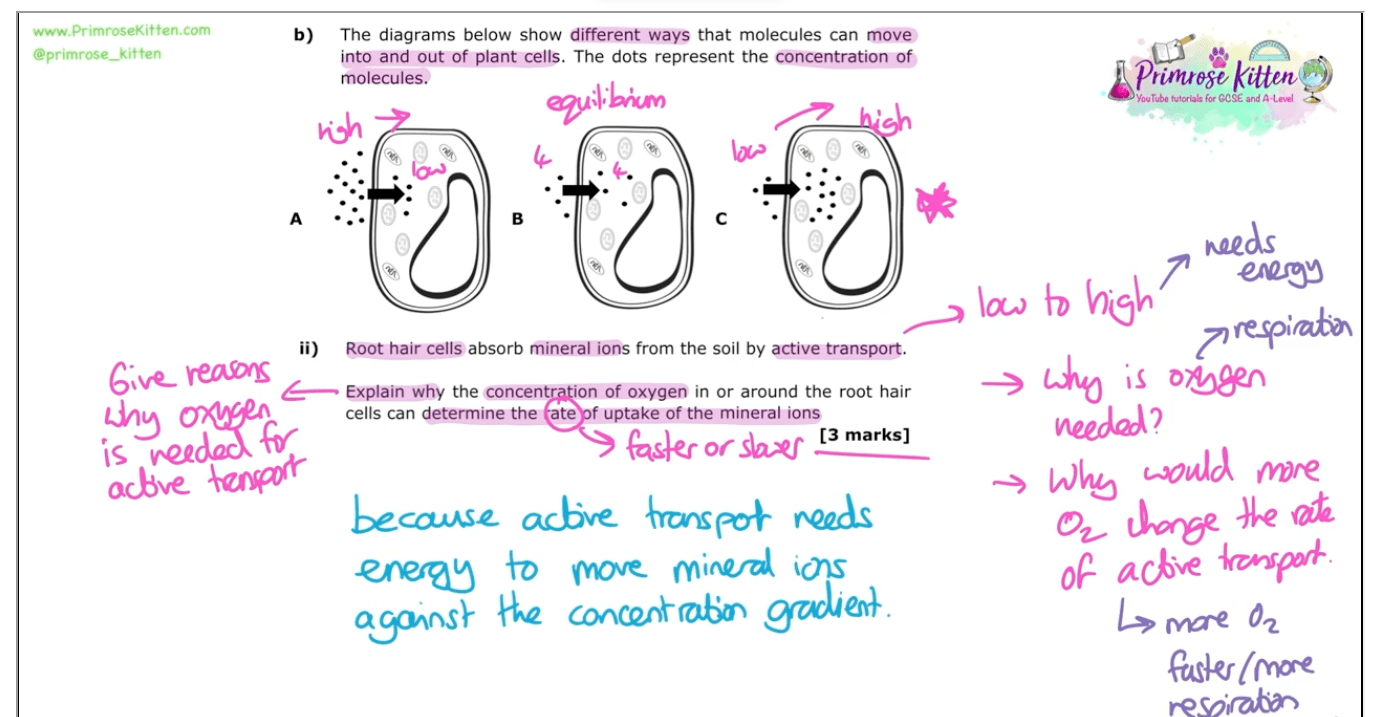 www.PrimroseKitten.com
@primrose_kitten
b) The diagrams below show different ways that molecules can move
into and out of plant cells. The dots represent the concentration of
molecules.
Primrose Kitten
YouTube tutorials for GCSE and A-Level
high
low
A
equilibrium
4
4
B
low
high
C
ii) Root hair cells absorb mineral ions from the soil by active transport.
Explain why the concentration of oxygen in or around the root hair
cells can determine the rate of uptake of the mineral ions
[3 marks]
faster or slower
Give reasons
why oxygen
is needed for
active transport
low to high
needs
energy
respiration
why is oxygen
needed?
Why would more
O₂ change the rate
of active transport.
more O₂
faster/more
respiration
because active transpot needs
energy to move mineral ions
against the concentration gradient.